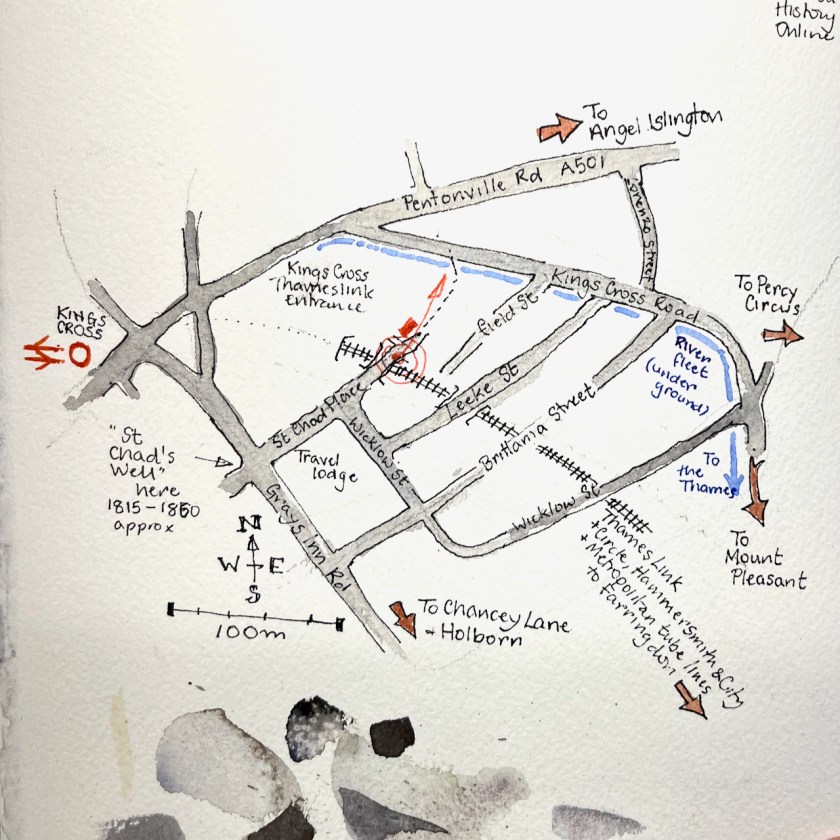 History
Online
To
Angel Islington
Pentonville Rd A501
Lorenzo Street
Kings Cross
Thameslink
entrance
Kings Cross Road
To Percy
Circus
KINGS
CROSS
Field St
River
fleet
(under
ground)
Leeke St
St Chad Place
"St
Chad's
Well"
here
1815-1860
approx
Travel
lodge
Wicklow St
Brittania Street
To
the
Thames
Wicklow St
Grays Inn Rd
N
W E
S
100m
To
Mount
Pleasant
Thames Link
+ Circle, Hammersmith & City
+ Metropolitan tube lines
to Farringdon
To Chancey Lane
+ Holborn